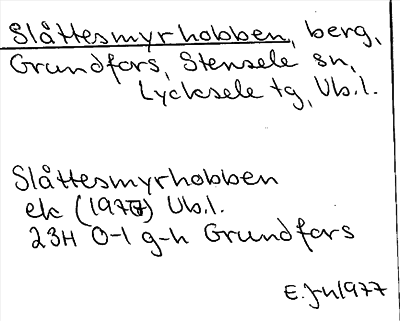 Slåttesmyrhobben, berg,
Grundfors, Stensele sn,
Lycksele tg, Vb.l.
Slåttesmyrhobben
ek (1977) Vb.l.
23H 0-1 g-h Grundfors
E.J-n1977